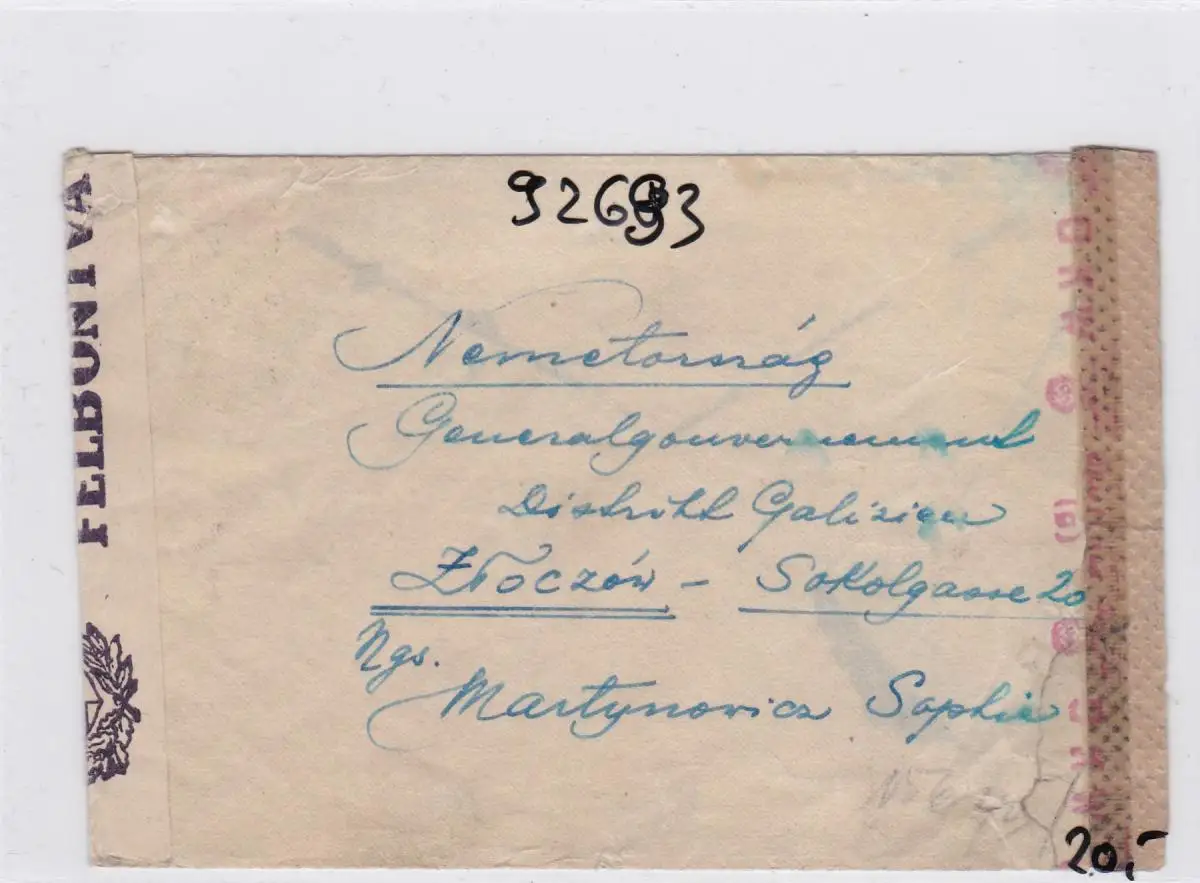 FELBONTVA
Nemetország
Generalgouvernement
Distrikt Galizien
Złoczów - Sokolgasse 20
Ngs.
Martynowicz Sophie
20,-